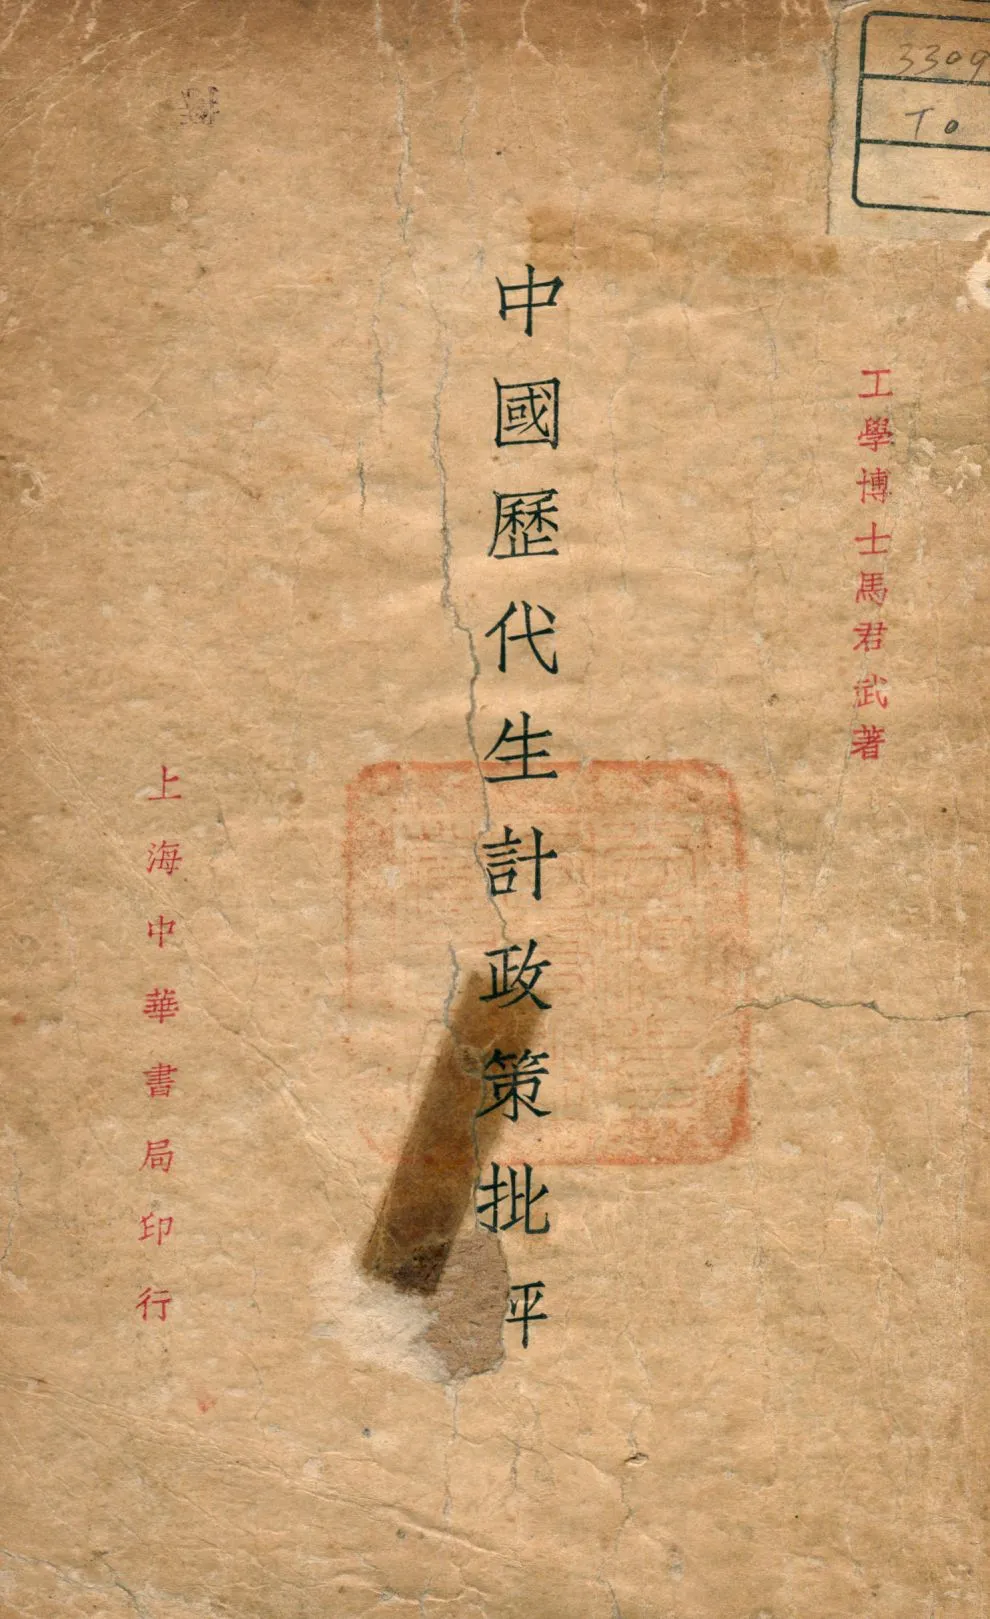 3309
To
工學博士馬君武著
中國歷代生計政策批評
上海中華書局印行